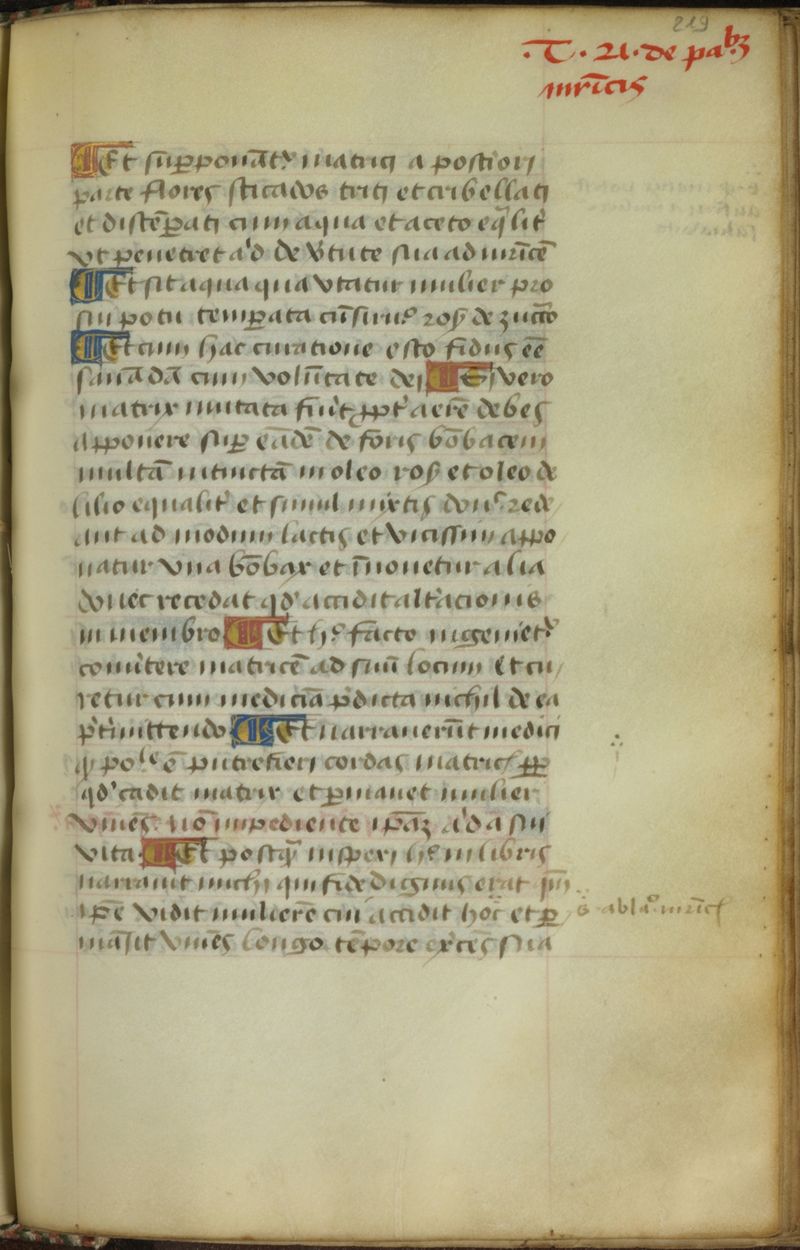 219
·T· 21· de paẜbꝫ
mr̄icis
¶ Et sup̄ponāt᷑ matrici a posteriori
parte flores sticados triti et cribellati
et distēꝑati cum aqua et aceto eq̄lit᷑
vt penetret ad de v̓tute sua ad mr̄icē
¶ Et sit aqua qua vtatur mulier pro
suo potu temꝑata cū sirus ros̄ de zucc̄o
¶ Et cum hac curatione esto fidus eē
sanāda cum volūtate dei ¶ Si vero
matrix mutata fiu̓it ꝓpt̓ aerē debes
apponere suꝑ eādē de foris bōbacem
multā intinctā in oleo ros̄ et oleo de
lilio equalit᷑ et simul mixtis donec rede
ant ad modum lactis et vicissim appo
natur vna bōbax et r̄moueatur alia
donec recedat qd̓ accidit alt̓acionis
in membro ¶ Et his facto ingeniet᷑
conu̓tere matricē ad suū locum Et cu
retur cum medicīa p̓dicta nichil de ea
p̓t̓mittendo ¶ Et narrauerūt medici
q̓ poss̄ē putrefieri cordas matricis ꝓꝑ
qd̓ cadit matrix et ꝑmanet mulier
viuēs. nō impediente ip̄aꝫ ad a sui
vita. ¶ Et postq̄ inspexi his in libris
narrauit michi qui fide dignus erat qm̄
ip̄e vidit mulierē cui accidit hoc et ꝑ
māsit viuēs longo tēpore exn̄tes sua
abla᷑ mr̄icis